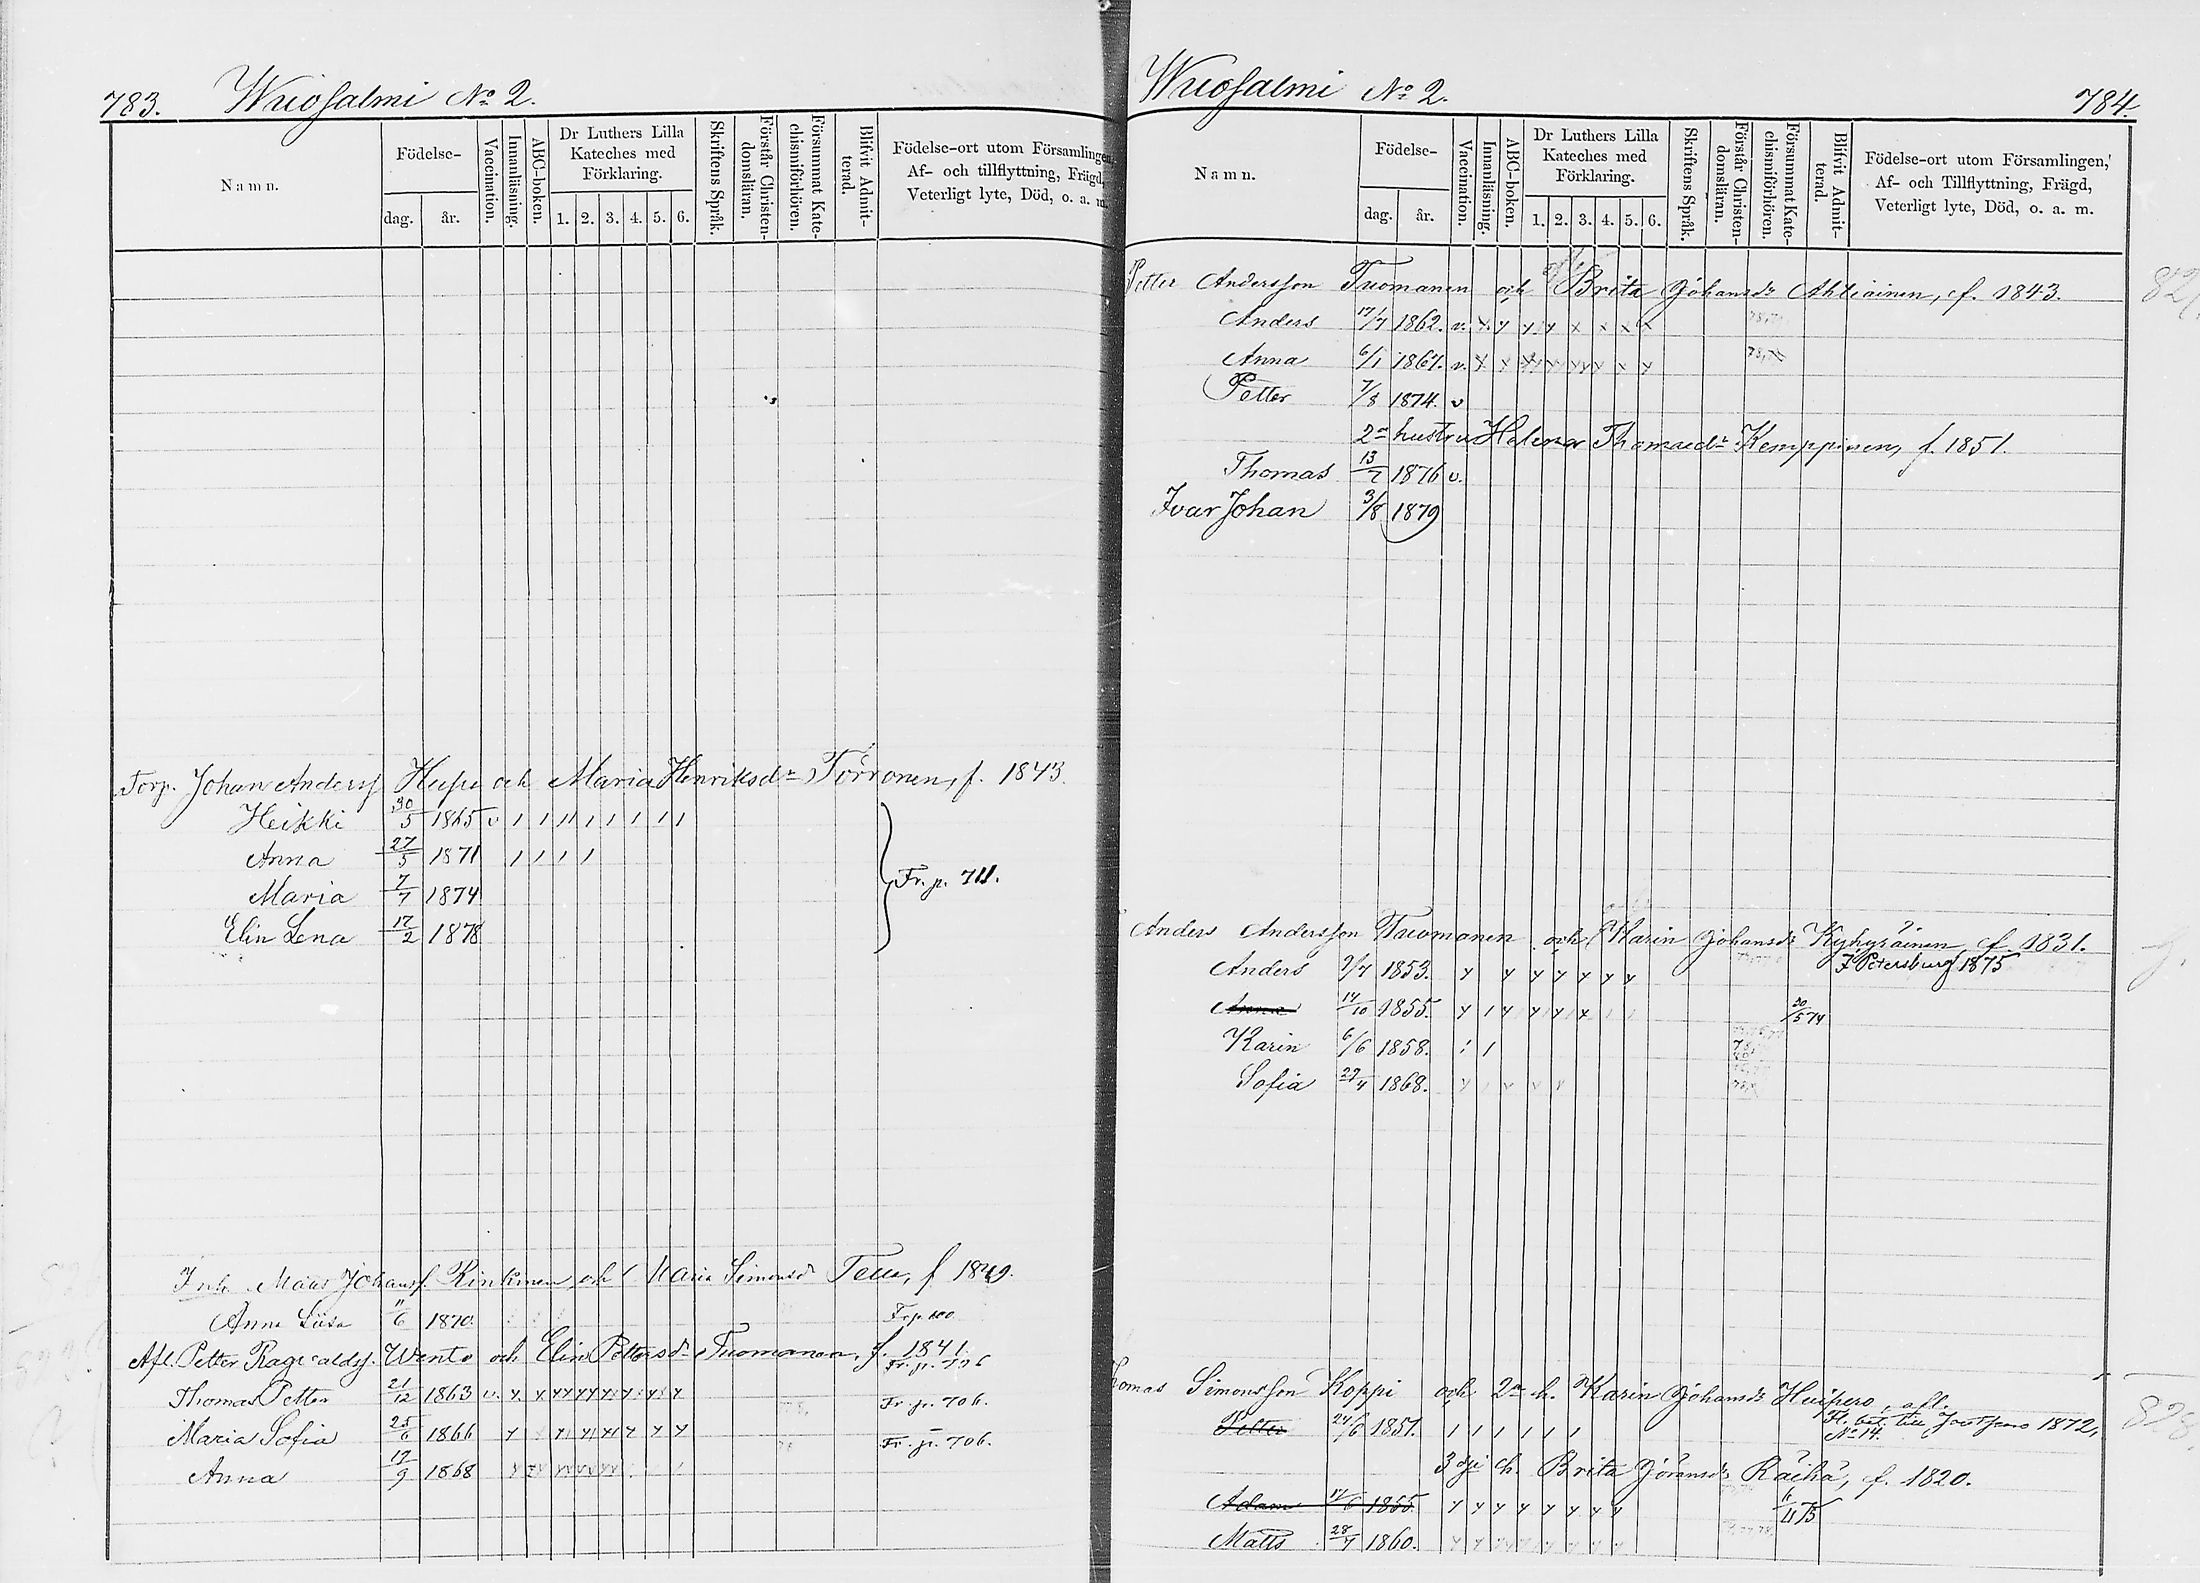 783. Wuosalmi No 2.
Namn.
Födelse-
dag.
år.
Vaccination.
Innanläsning.
ABC-boken.
Dr Luthers Lilla
Kateches med
Förklaring.
1. 2. 3. 4. 5. 6.
Skriftens Språk.
Förstår Christen-
domsläran.
Försummat Kate-
chismiförhören.
Blifvit Admit-
terad.
Födelse-ort utom Församlingen
Af- och tillflyttning, Frägd,
Veterligt lyte, Död, o. a. m.
Torp. Johan Anderss. och Maria Henriksdr Törrönen, f. 1843.
Heikki 30/5 1865 v
Anna 27/5 1871
Maria 7/7 1874
Elin Lena 17/2 1878
Fr. p. 711.
Johanss. Rinkinen och Maria Simonsd
Anna Liisa 11/6 1870
Afl. Petter Wento och Elin Pettersdr Tuomanen, f. 1841.
Fr. p. 706
Thomas Petter 21/12 1863 v. Fr. p. 706.
Maria Sofia 25/6 1866 Fr. p. 706.
Anna 17/9 1868
Wuosalmi No 2. 784.
Namn.
Födelse-
dag.
år.
Vaccination.
Innanläsning.
ABC-boken.
Dr Luthers Lilla
Kateches med
Förklaring.
1. 2. 3. 4. 5. 6.
Skriftens Språk.
Förstår Christen-
domsläran.
Försummat Kate-
chismiförhören.
Blifvit Admit-
terad.
Födelse-ort utom Församlingen,
Af- och Tillflyttning, Frägd,
Veterligt lyte, Död, o. a. m.
Petter Andersson Tuomanen och Brita Johansdr Ahtiainen, f. 1843.
Anders 17/7 1862. v.
Anna 6/1 1867. v.
Petter 7/8 1874. v
2a hustru Helena Thomasdr Kemppinen, f. 1851.
Thomas 13/7 1876 v.
Ivar Johan 3/8 1879
Anders Andersson Tuomanen och Karin Johansdr Kyhyräinen f. 1831.
Anders 7/7 1853. F Petersburg 1875
Anna 14/10 1855. 20/5 74
Karin 6/6 1858.
Sofia 27/4 1868.
Simonsson Koppi och 2a h. Karin Johansdr Huipero, afl.
Petter 24/6 1851. Fl. bet. till 1872,
No 14.
3dje h. Brita Göransdr Räihä, f. 1820.
Adam 17/6 1855. 6/11 75
Matts 28/7 1860.
828.